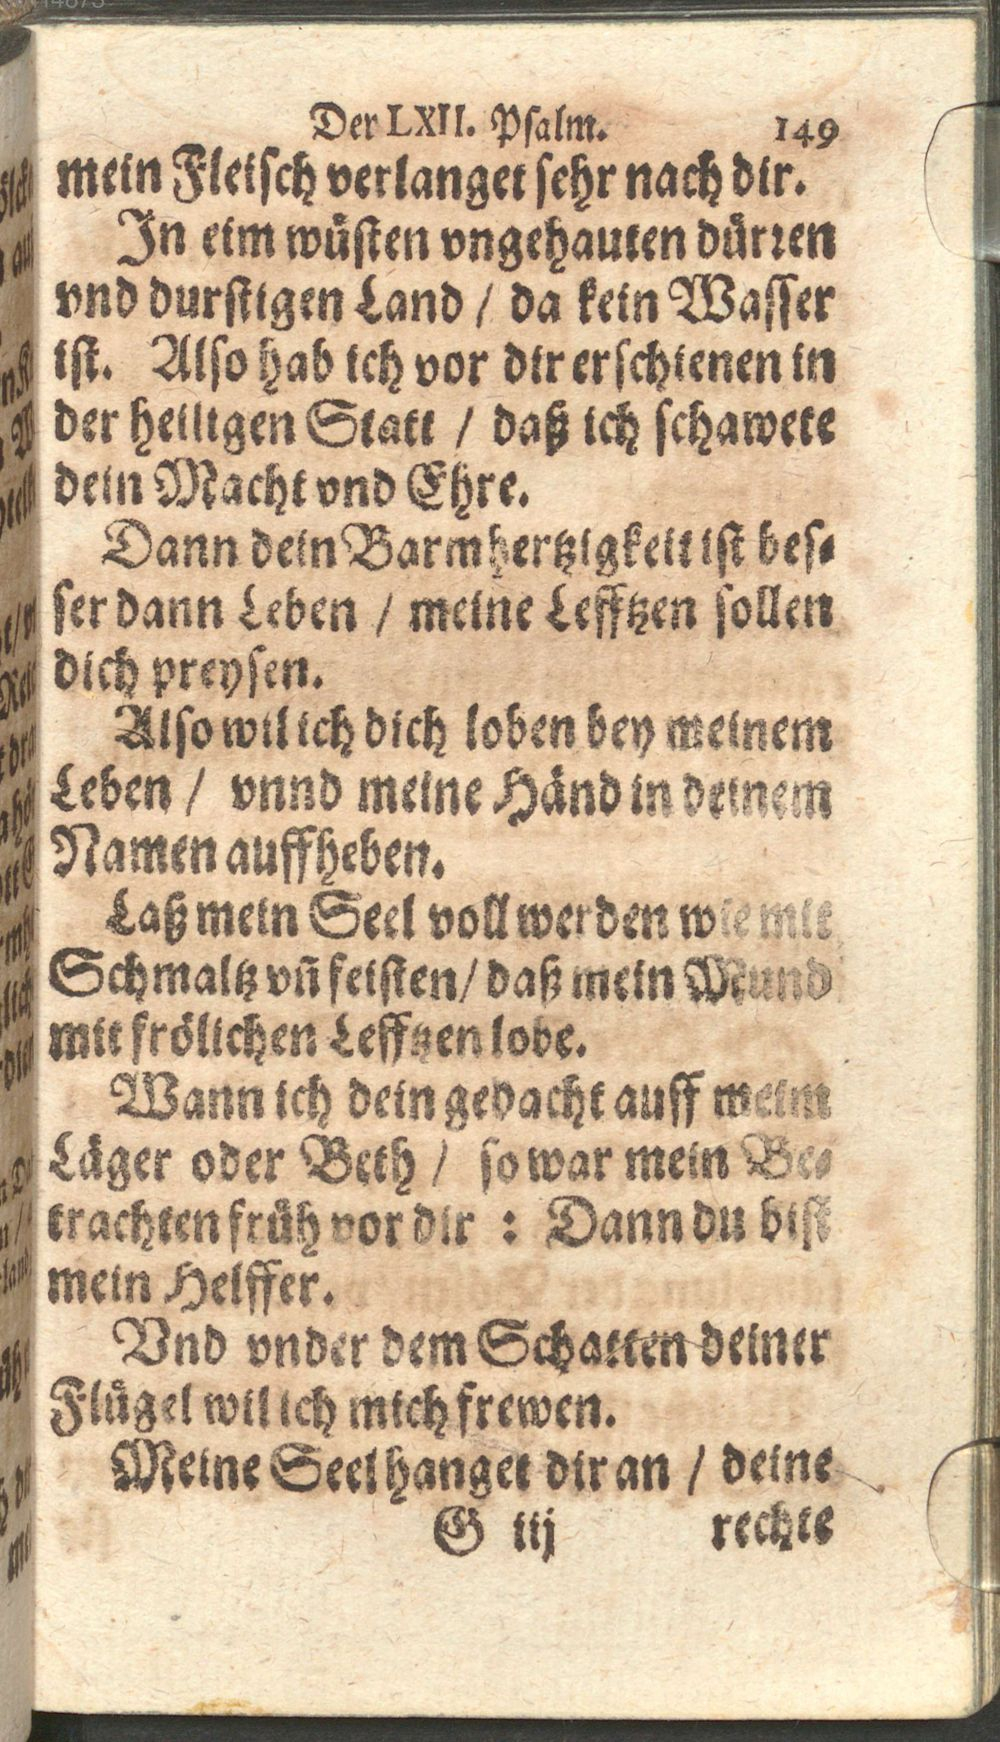 Der LXII. Psalm. 149
mein Fleisch verlanget sehr nach dir.
In eim wüsten vngehauten dürren
vnd durstigen Land / da kein Wasser
ist. Also hab ich vor dir erschienen in
der heiligen Statt / daß ich schawete
dein Macht vnd Ehre.
Dann dein Barmhertzigkeit ist bes-
ser dann Leben / meine Lefftzen sollen
dich preysen.
Also wil ich dich loben bey meinem
Leben / vnnd meine Händ in deinem
Namen auffheben.
Laß mein Seel voll werden wie mit
Schmaltz vñ feisten / daß mein Mund
mit frölichen Lefftzen lobe.
Wann ich dein gedacht auff meim
Läger oder Beth / so war mein Be-
trachten früh vor dir : Dann du bist
mein Helffer.
Vnd vnder dem Schatten deiner
Flügel wil ich mich frewen.
Meine Seel hanget dir an / deine
G iij rechte